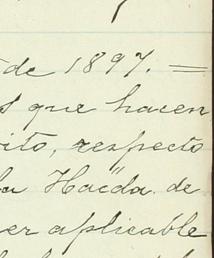 de 1897. =
que hacen
ito, respecto
la Hacda. de
er aplicable